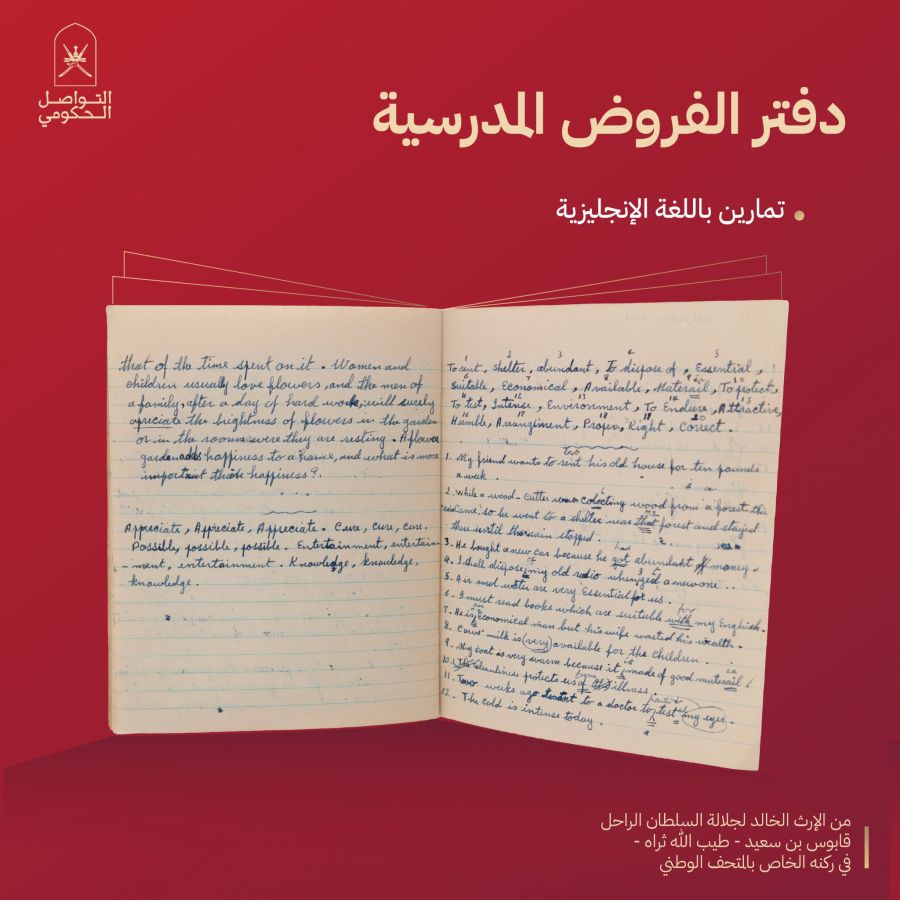 التواصل
الحكومي
دفتر الفروض المدرسية
تمارين باللغة الإنجليزية
that of the time spent on it. Women and
children usually love flowers, and the men of
a family, after a day of hard work, will surely
apreciate the brightness of flowers in the garden
or in the rooms were they are resting. A flower
garden adds happiness to a home, and what is more
important than happiness?
Appreciate, Appreciate, Appreciate. Cure, cure, cure.
Possible, possible, possible. Entertainment, entertain-
-ment, entertainment. Knowledge, knowledge,
knowledge.
1 2 3 4 5
To rent, Shelter, abundant, To dispose of, Essential,
Suitable, Economical, Available, Materail, To protect,
To test, Intense, Environment, To Endure, Attractive,
Humble, Arrangment, Proper, Right, Correct.
1. My friend wants to rent his old house for ten pounds
a week.
2. While a wood-cutter was colecting wood from a forest, the
rain came, so he went to a shelter near that forest and stayed
there until the rain stopped.
3. He bought a new car because he got abundant of money.
4. I shall dispose my old radio when I get a new one.
5. Air and water are very Essential for us.
6. I must read books which are suitable with my English.
7. He is economical man but his wife wasted his wealth.
8. Cows' milk is very available for the children.
9. My coat is very warm because it made of good materail.
10. The cleanlines protects us of illness.
11. Two weeks ago I went to a doctor to test my eyes.
12. The cold is intense today.
من الإرث الخالد لجلالة السلطان الراحل
قابوس بن سعيد - طيب الله ثراه -
في ركنه الخاص بالمتحف الوطني